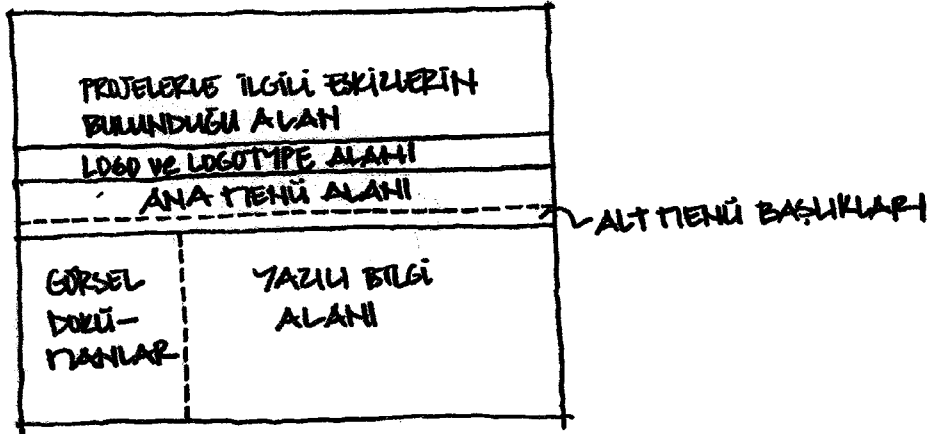 PROJELERLE İLGİLİ ESKİZLERİN
BULUNDUĞU ALAN
LOGO ve LOGOTYPE ALANI
ANA MENÜ ALANI
ALT MENÜ BAŞLIKLARI
GÖRSEL
DOKÜ-
MANLAR
YAZILI BİLGİ
ALANI